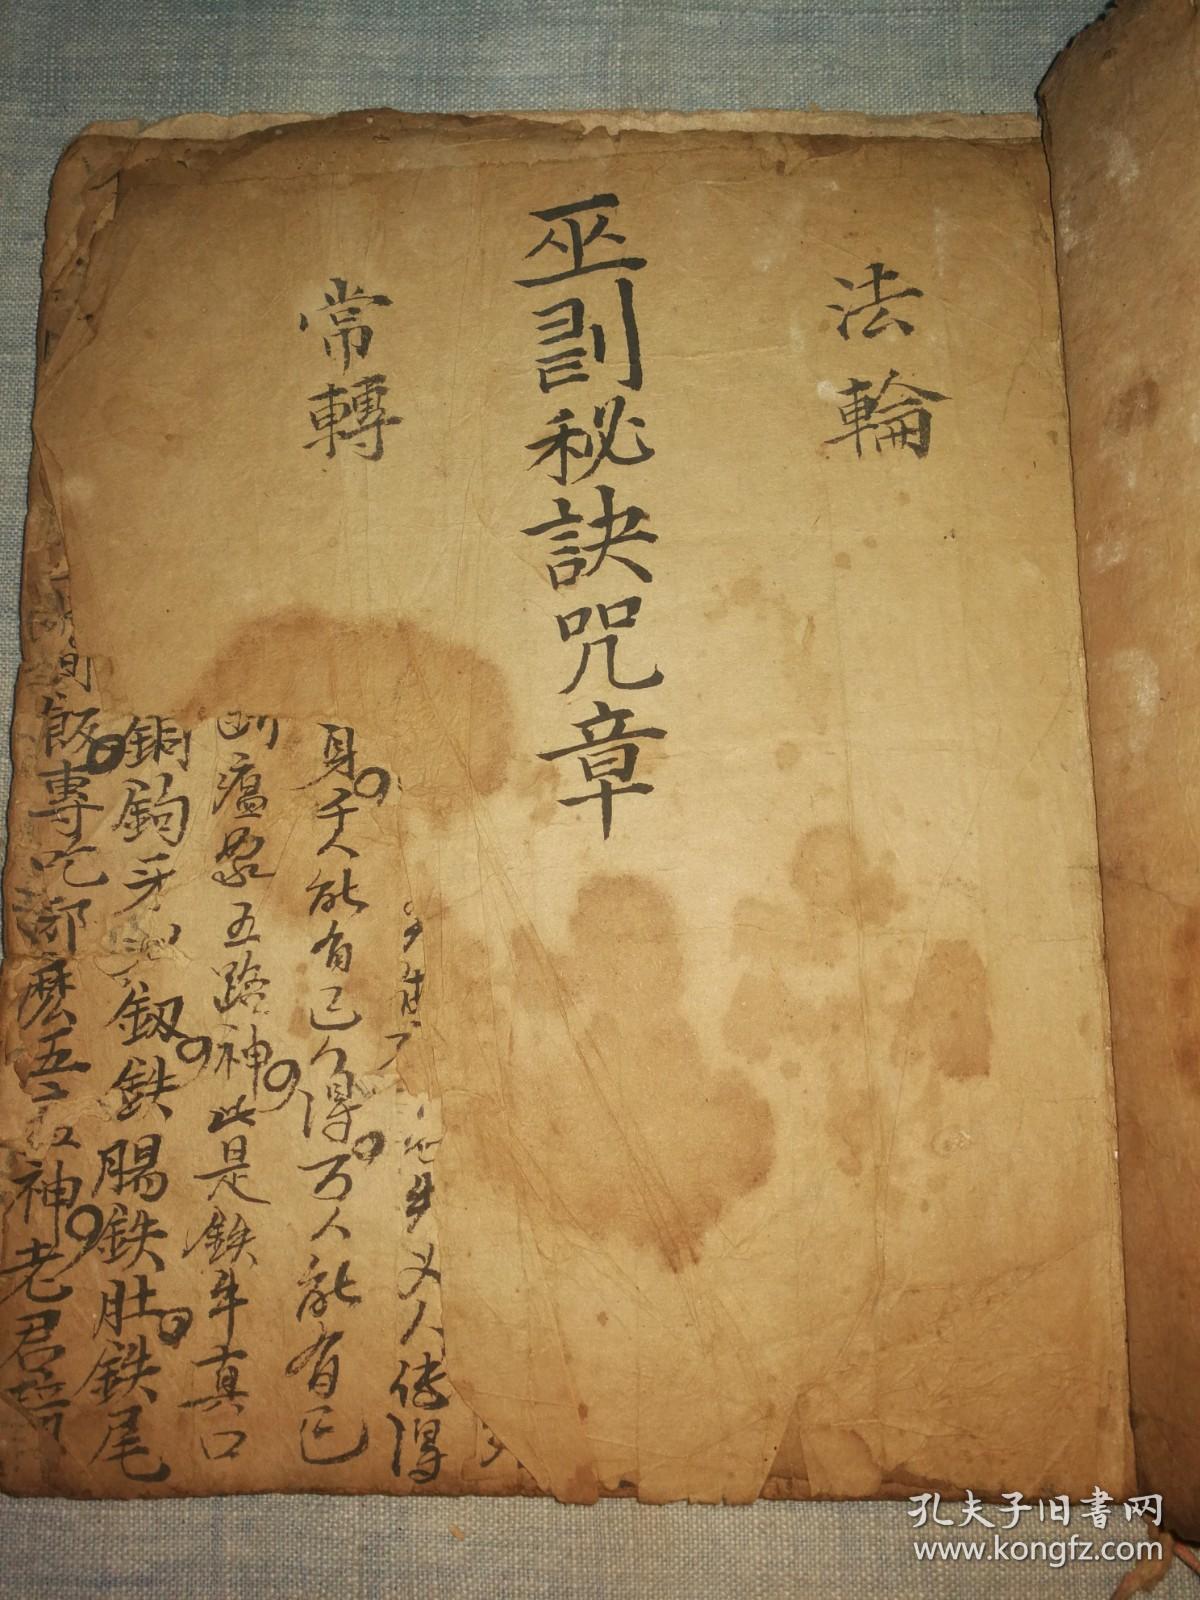 法輪
巫罰秘訣咒章
常轉
人传得
身千人能有已人得万人能有已
瘟 五路神此是鉄牛真口
銅鉤牙 釼鉄腸鉄肚鉄尾
飯專吃邪 五 神老君
孔夫子旧书网
www.kongfz.com